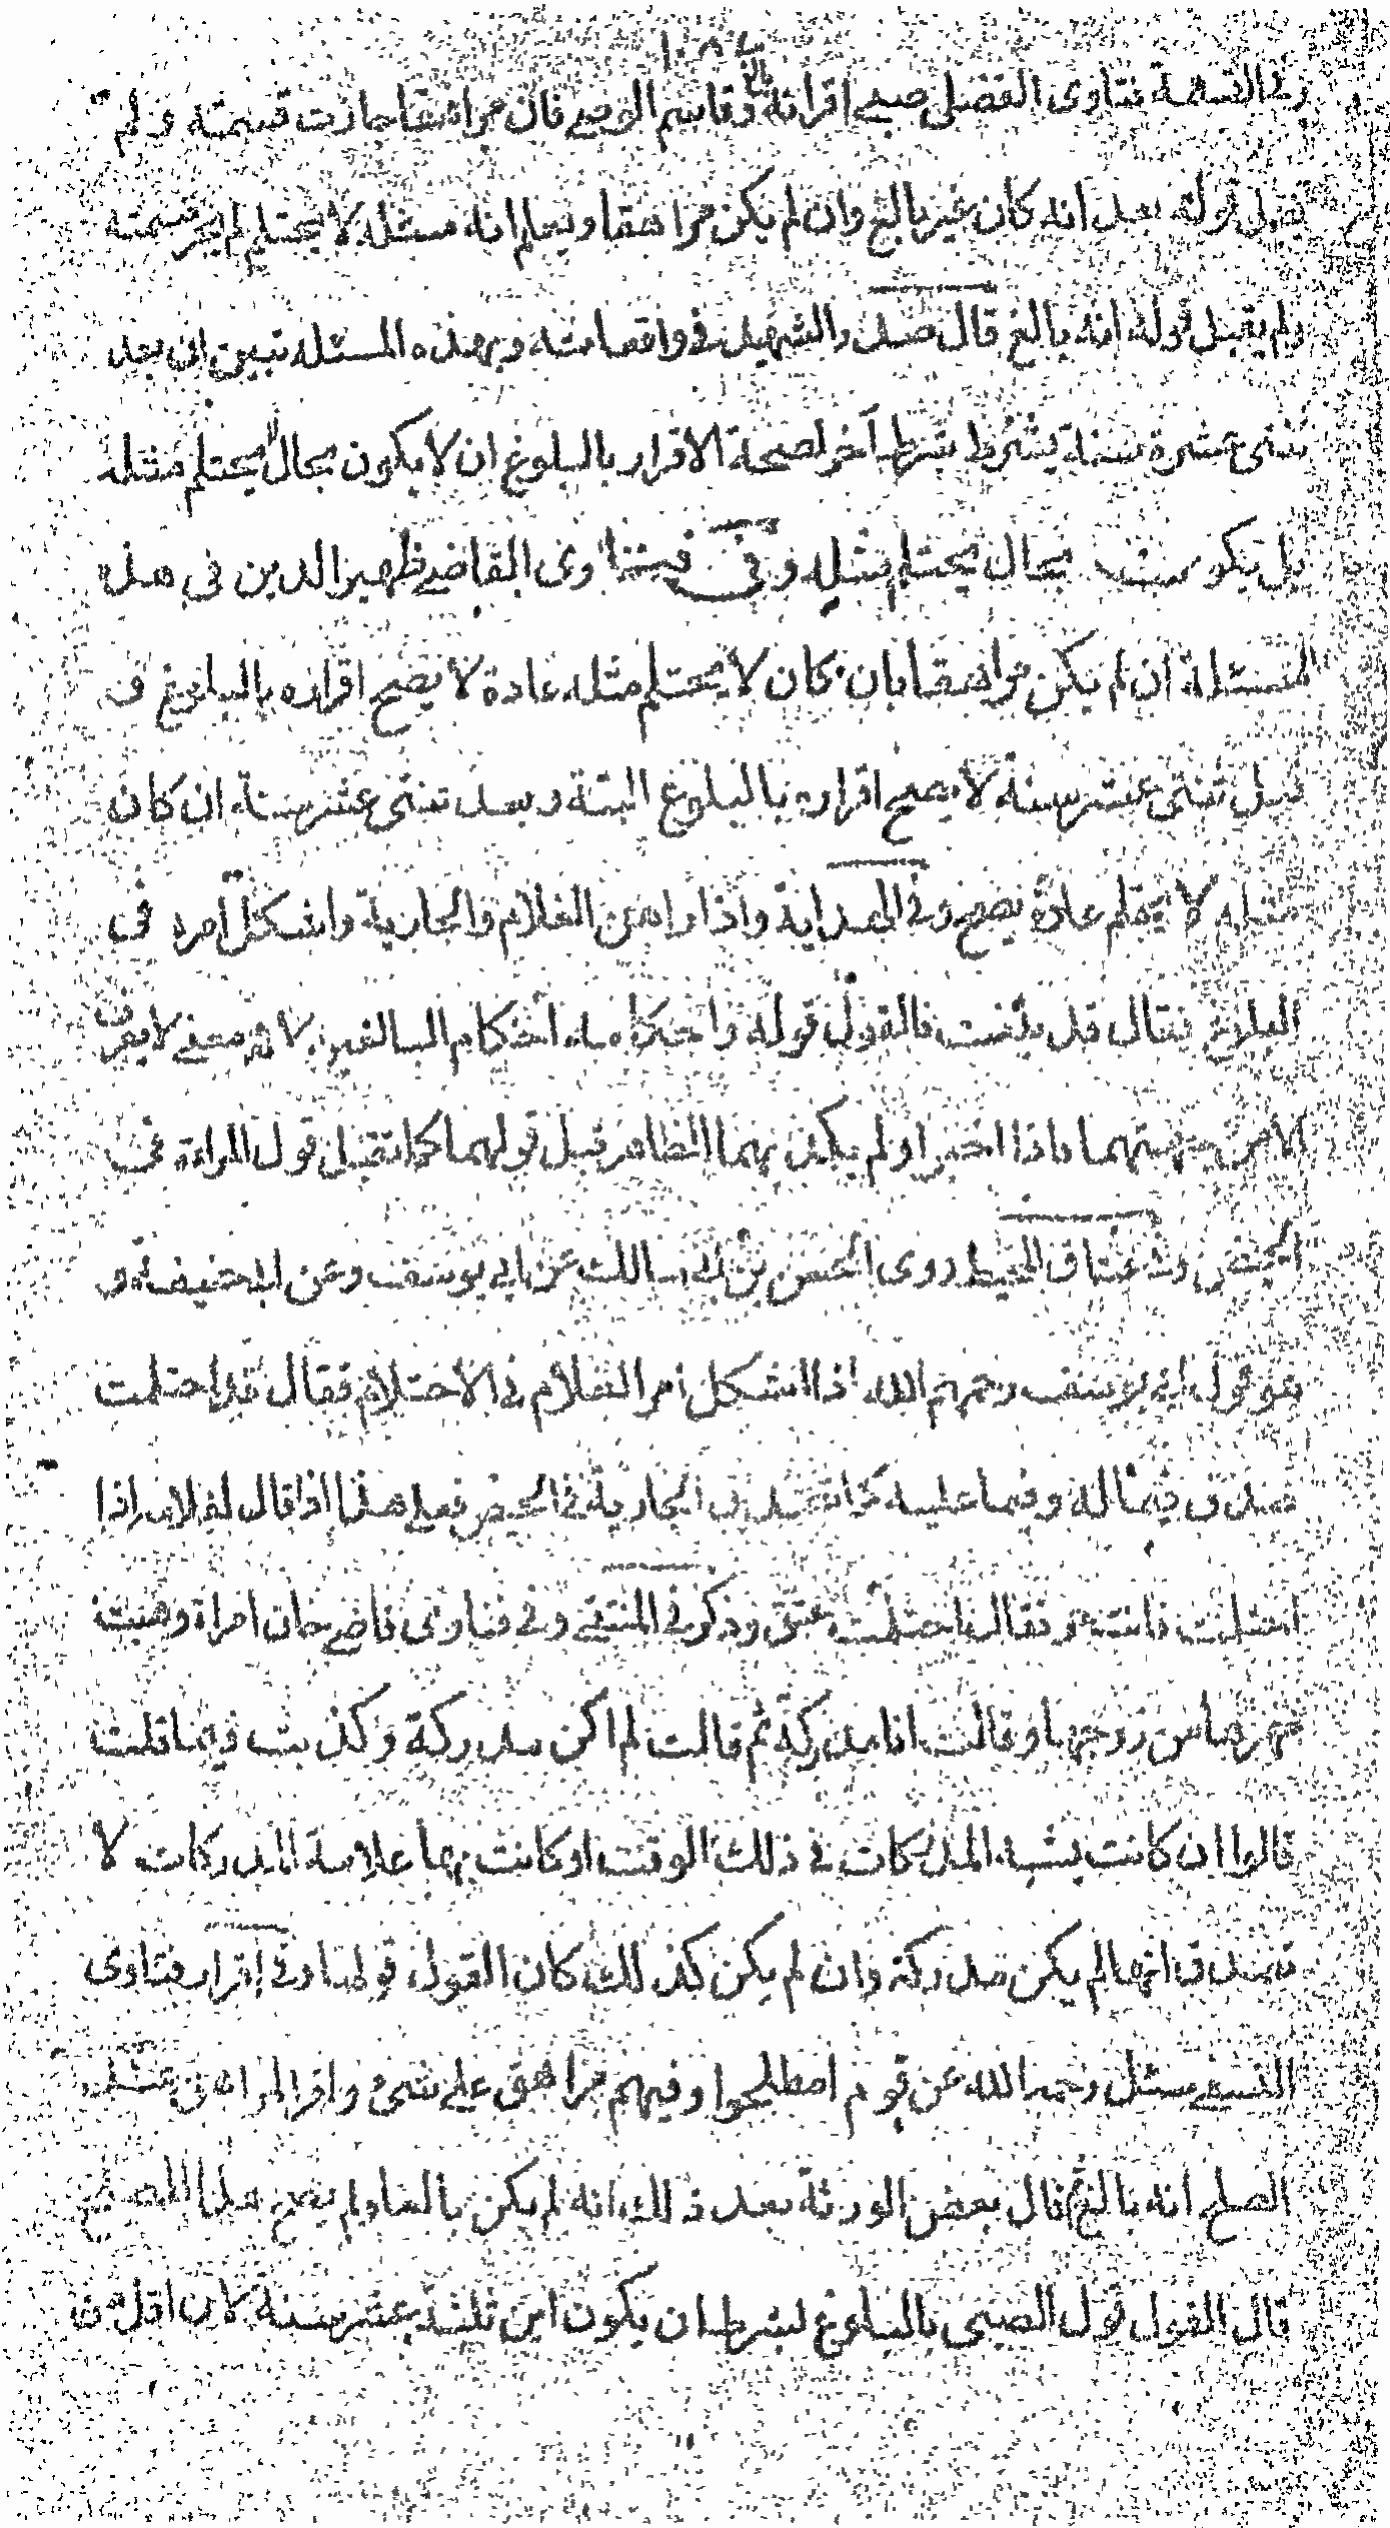 وفي القسمة فتاوى الفضلى صبي اقر انه بالغ وقاسم الوصي فان مراهقا جازت قسمته ولم
تقبل قوله بعد انه كان غير بالغ وان لم يكن مراهقا ويعلم انه مثله لا يحتلم لم يجز قسمته
ولم يقبل قوله انه بالغ قال صدر الشهيد في واقعاته وبهذه المسئله تبين ان بعد
ثنتى عشرة سنة يشترط شرط آخر لصحة الاقرار بالبلوغ ان لا يكون بحال لا يحتلم مثله
بل يكون بحال يحتلم مثله وفي فتاوى القاضي ظهير الدين في هذه
المسئلة ان لم يكن مراهقا بان كان لا يحتلم مثله عادة لا يصح اقراره بالبلوغ
قبل ثنتى عشر سنة لا يصح اقراره بالبلوغ البتة وبعد ثنتى عشر سنة ان كان
مثله لا يحتلم عادة يصح وفي الهداية واذا راهق الغلام والجارية واشكل امره في
البلوغ فقال قد بلغت فالقول قوله واحكامه احكام البالغين لانه معنى لا يعرف
الا من جهتهما فاذا اخبرا ولم يكذبهما الظاهر قبل قولهما كما تقبل قول المراءة في
الحيض وفي عتاق المحيط روى الحسن بن ابي مالك عن ابي يوسف وعن ابي حنيفة و
هو قول ابي يوسف رحمهم الله اذا اشكل امر الغلام في الاحتلام فقال قد احتلمت
صدق فيما له وفيما عليه كما تصدق الجارية في الحيض فعلى هذا اذا قال لغلامه اذا
احتلمت فانت حر فقال احتلمت عتق وذكر في المنتقى وفي فتاوى قاضي خان امراة وهبت
مهرها من زوجها وقالت انا مدركة ثم قالت لم اكن مدركة وكذبت فيما قلت
قالوا ان كانت يشبه المدركات في ذلك الوقت او كانت بها علامة المدركات لا
تصدق انها لم يكن مدركة وان لم يكن كذلك كان القول قولها وفي اقرار فتاوى
النسفي سئل رحمه الله عن قوم اصطلحوا وفيهم مراهق على شيء واقر المراهق عند
الصلح انه بالغ فقال بعض الورثة بعد ذلك انه لم يكن بالغا ولم يصح هذا الصلح
قال القول قول الصبى بالبلوغ لشرط ان يكون ابن ثلث عشر سنة لان اقل من